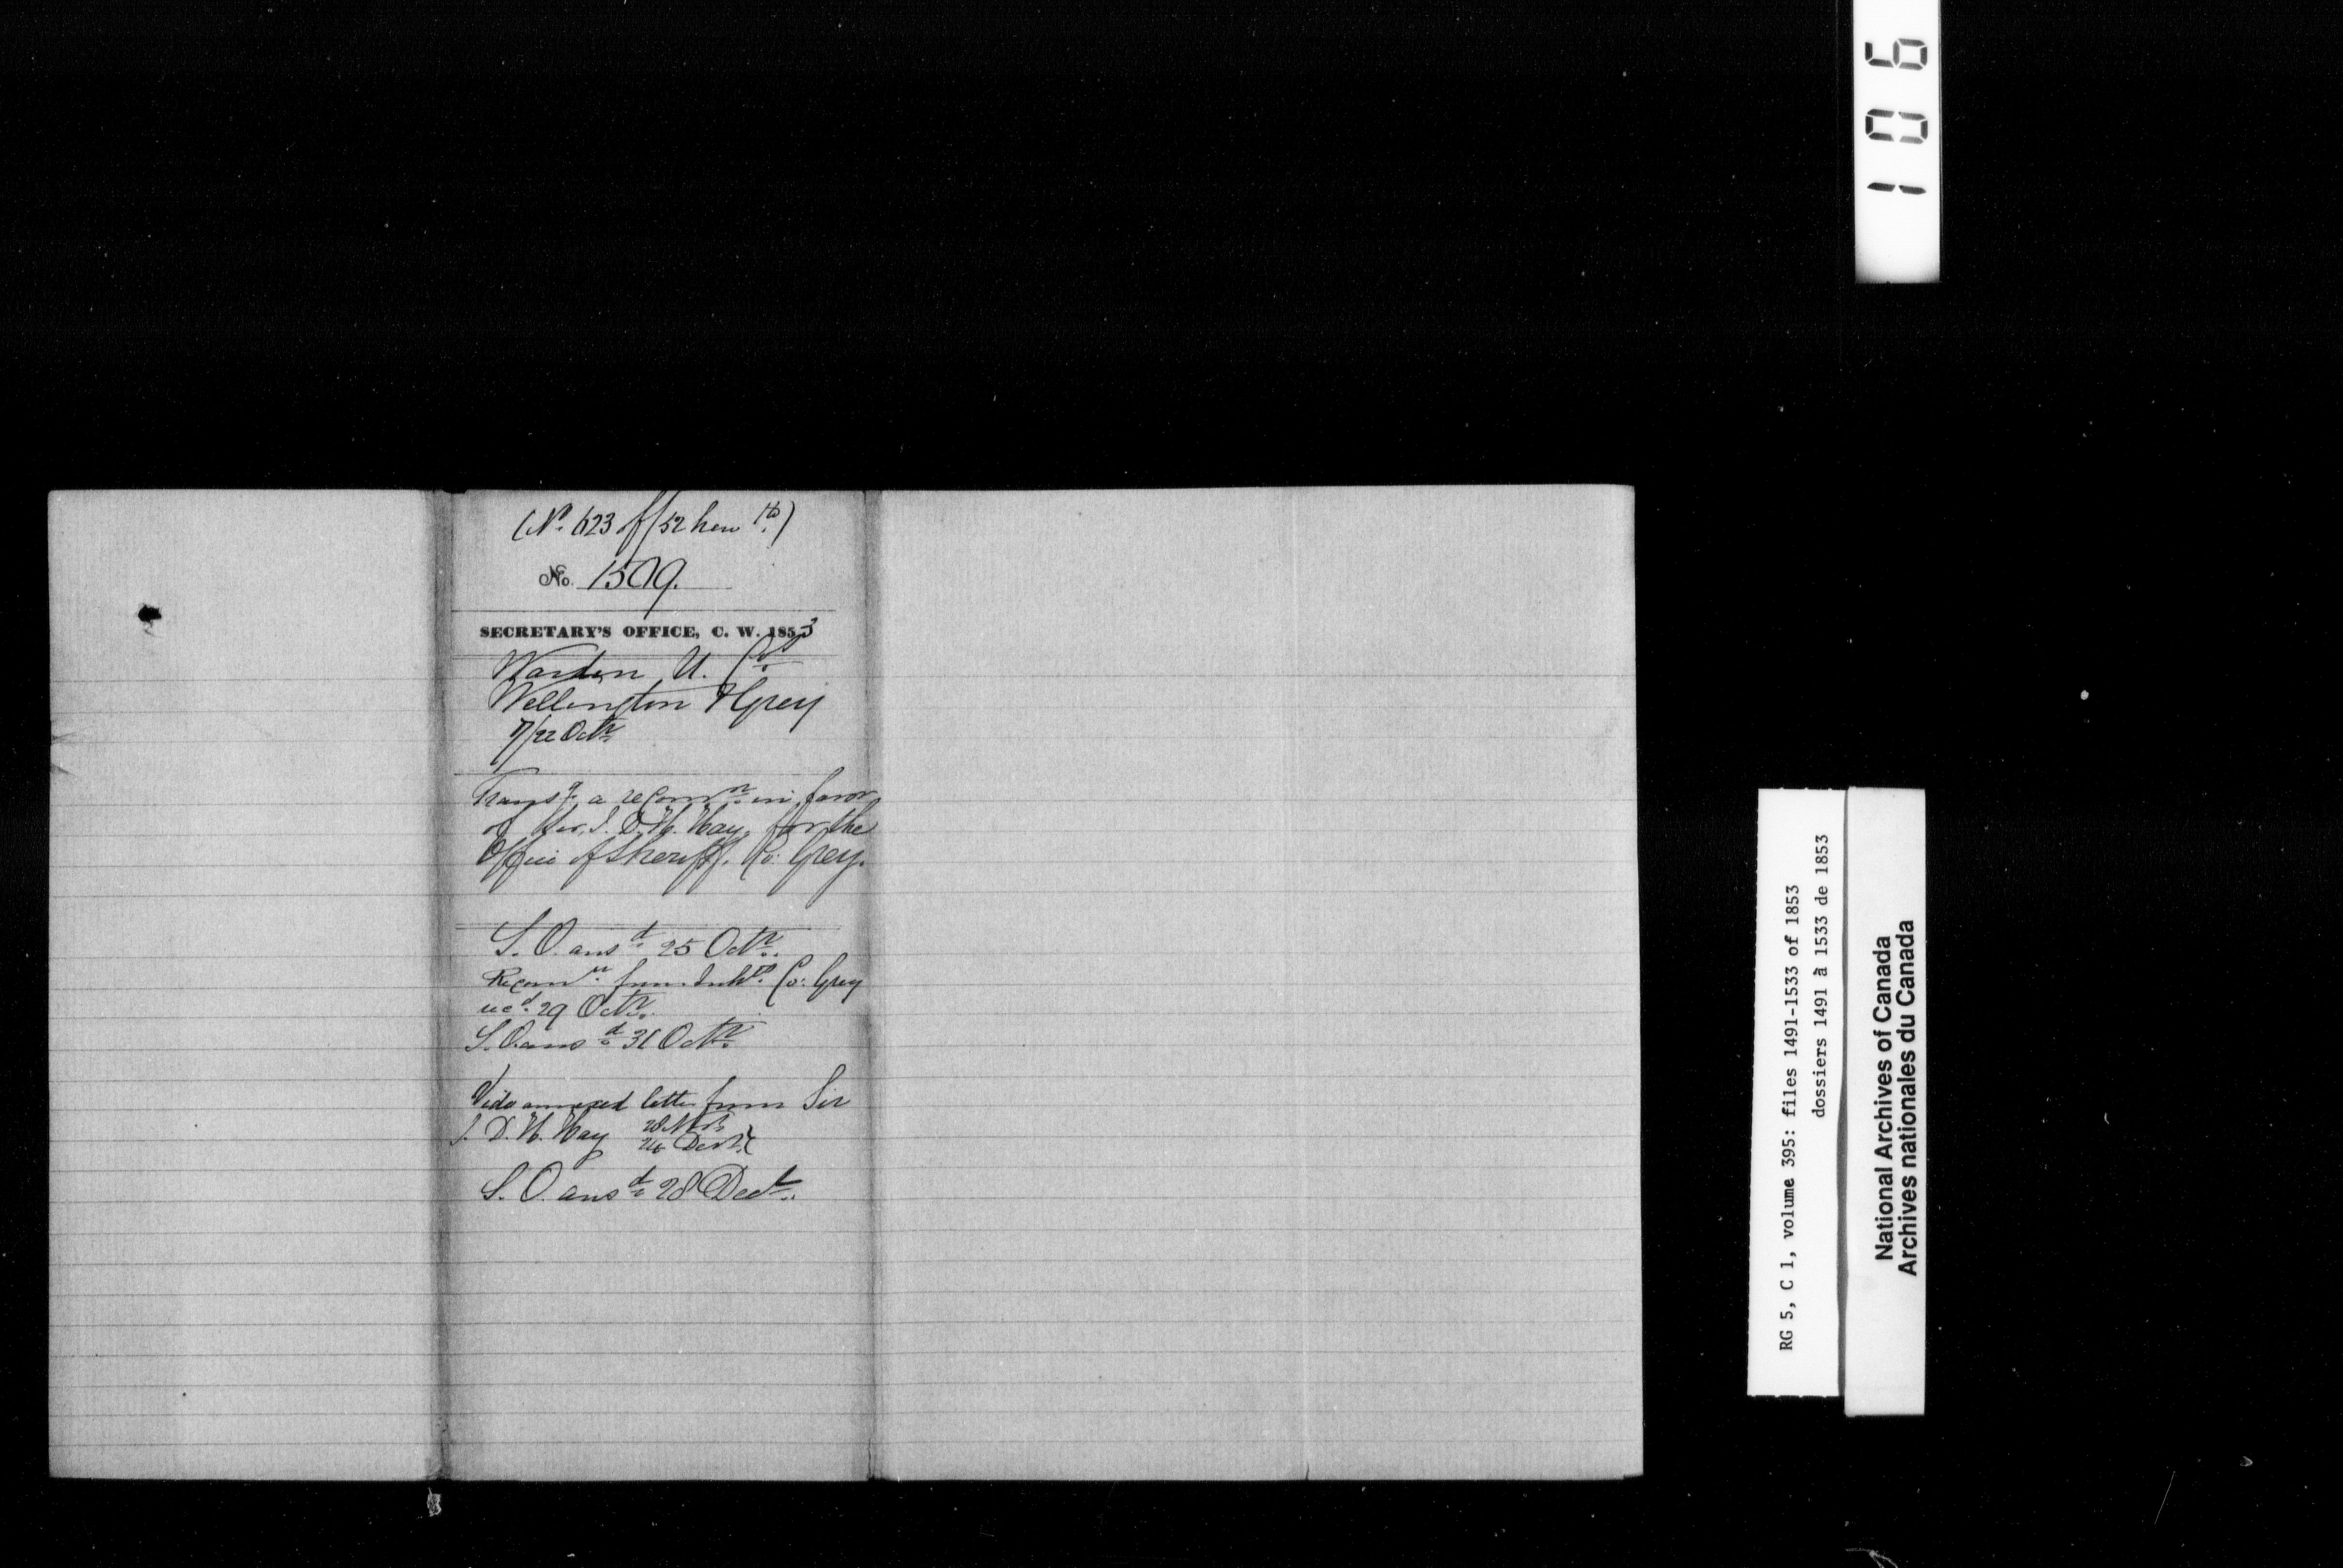 (No. 623 of/52 herewth)
No. 1509.
SECRETARY'S OFFICE, C. W. 1853
Warden U. Cos
Wellington & Grey
22 Octr.
Transg. a recomn. in favor
of Sir J. D. H. Hay, for the
Office of Sheriff, Co: Grey.
S. O. ansd. 25 Octr.
Recomn. from Inhts. Co: Grey
recd. 29 Octr.
S. O. ansd. 31 Octr.
Vide annexed letter from Sir
J. D. H. Hay
26 Decr.
S. O. ansd. 28 Decr.
106
RG 5, C 1, volume 395: files 1491-1533 of 1853
dossiers 1491 à 1533 de 1853
National Archives of Canada
Archives nationales du Canada